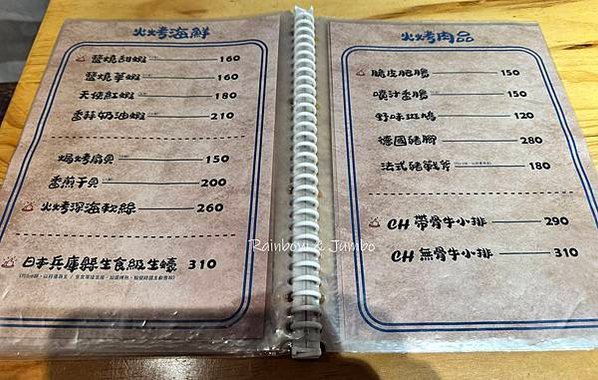 火烤海鮮
鹽燒甜蝦 160
鹽燒草蝦 160
天使紅蝦 180
香蒜奶油蝦 210
焗烤扇貝 150
香煎干貝 200
火烤深海軟絲 260
日本兵庫縣生食級生蠔 310
火烤肉品
脆皮肥腸 150
噴汁香腸 150
野味斑鳩 120
德國豬腳 280
法式豬戰斧 180
CH 帶骨牛小排 290
CH 無骨牛小排 310
Rainbow & Jumbo